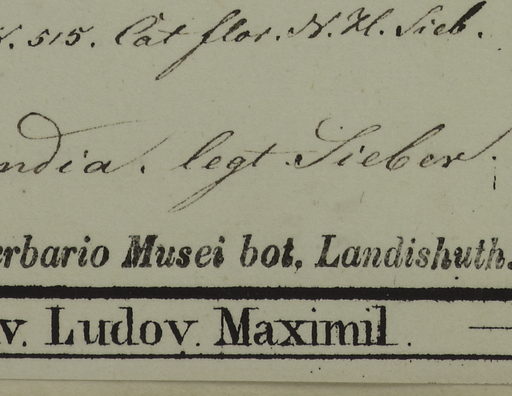 N. 515. Cat flor. N. H. Sieb.
ndia. legt Sieber.
erbario Musei bot. Landishuth.
v. Ludov. Maximil.